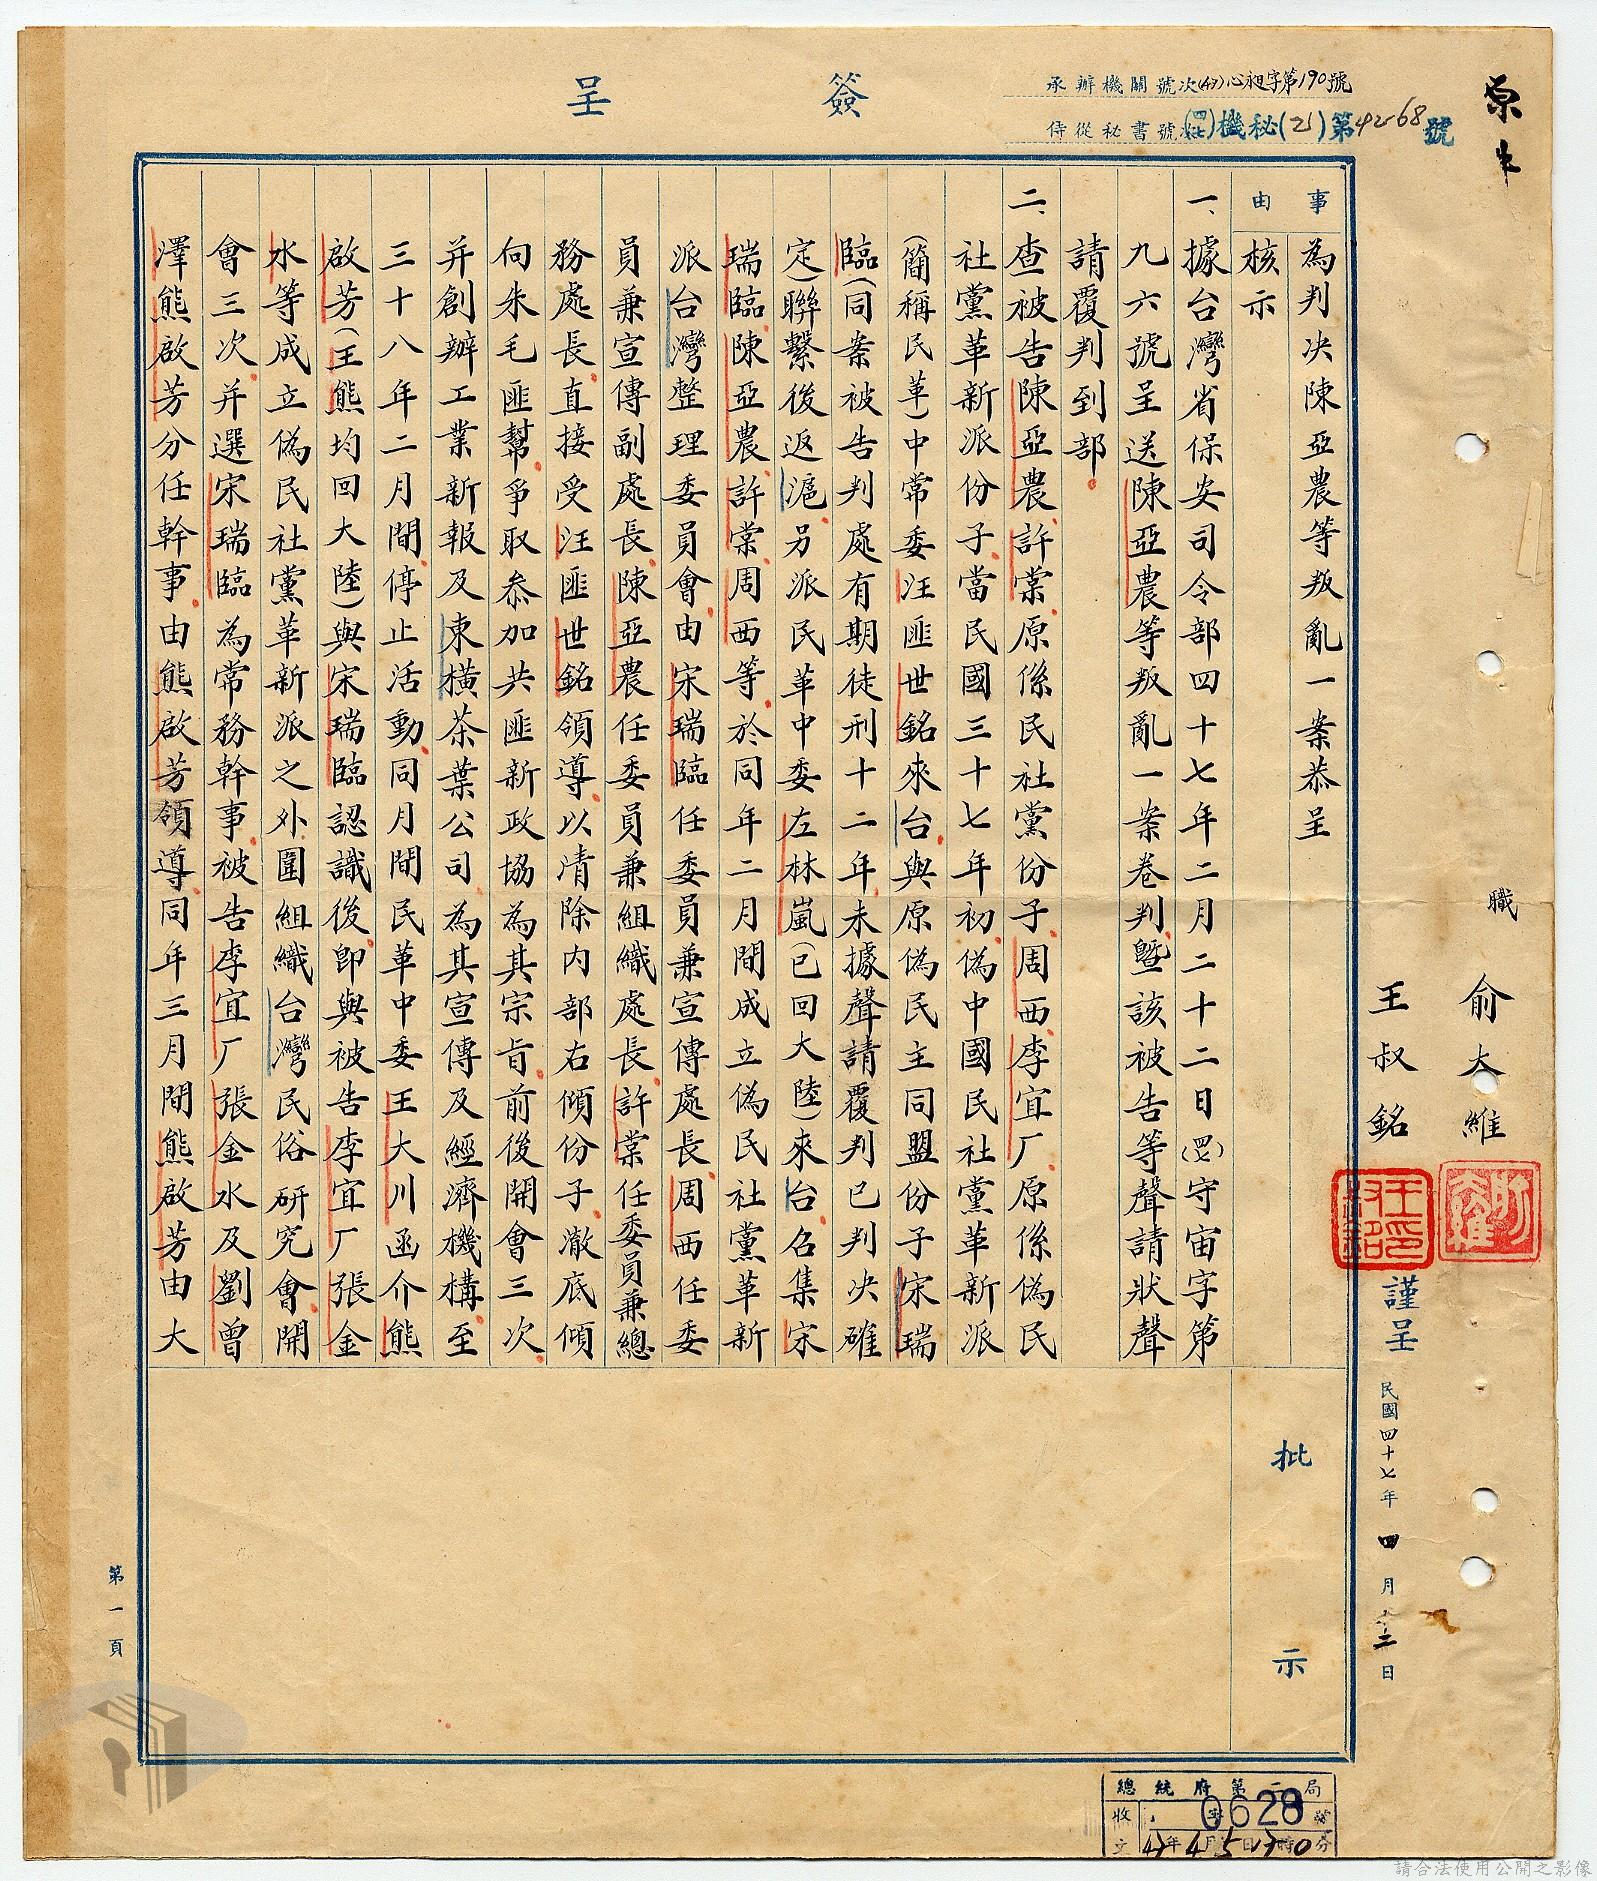 簽呈
承辦機關號次(47)心昶字第190號
侍從秘書號次(四七)機秘(乙)第4268號
事由
為判決陳亞農等叛亂一案恭呈
核示
一、據台灣省保安司令部四十七年二月二十二日(四七)守宙字第
九六號呈送陳亞農等叛亂一案卷判暨該被告等聲請狀聲
請覆判到部。
二、查被告陳亞農許棠原係民社黨份子周西李宜厂原係偽民
社黨革新派份子當民國三十七年初偽中國民社黨革新派
(簡稱民革)中常委汪匪世銘來台與原偽民主同盟份子宋瑞
臨(同案被告判處有期徒刑十二年未據聲請覆判已判決確
定)聯繫後返滬另派民革中委左林嵐(已回大陸)來台召集宋
瑞臨陳亞農許棠周西等於同年二月間成立偽民社黨革新
派台灣整理委員會由宋瑞臨任委員兼宣傳處長周西任委
員兼宣傳副處長陳亞農任委員兼組織處長許棠任委員兼總
務處長直接受汪匪世銘領導以清除內部右傾份子澈底傾
向朱毛匪幫爭取叅加共匪新政協為其宗旨前後開會三次
并創辦工業新報及東橫茶葉公司為其宣傳及經濟機構至
三十八年二月間停止活動同月間民革中委王大川函介熊
啟芳(王熊均回大陸)與宋瑞臨認識後即與被告李宜厂張金
水等成立偽民社黨革新派之外圍組織台灣民俗研究會開
會三次并選宋瑞臨為常務幹事被告李宜厂張金水及劉曾
澤熊啟芳分任幹事由熊啟芳領導同年三月間熊啟芳由大
批示
職
俞大維
王叔銘
謹呈
民國四十七年四月十二日
第一頁
總統府第二局
收
0628號
文
年 月 日 時 分
請合法使用公開之影像